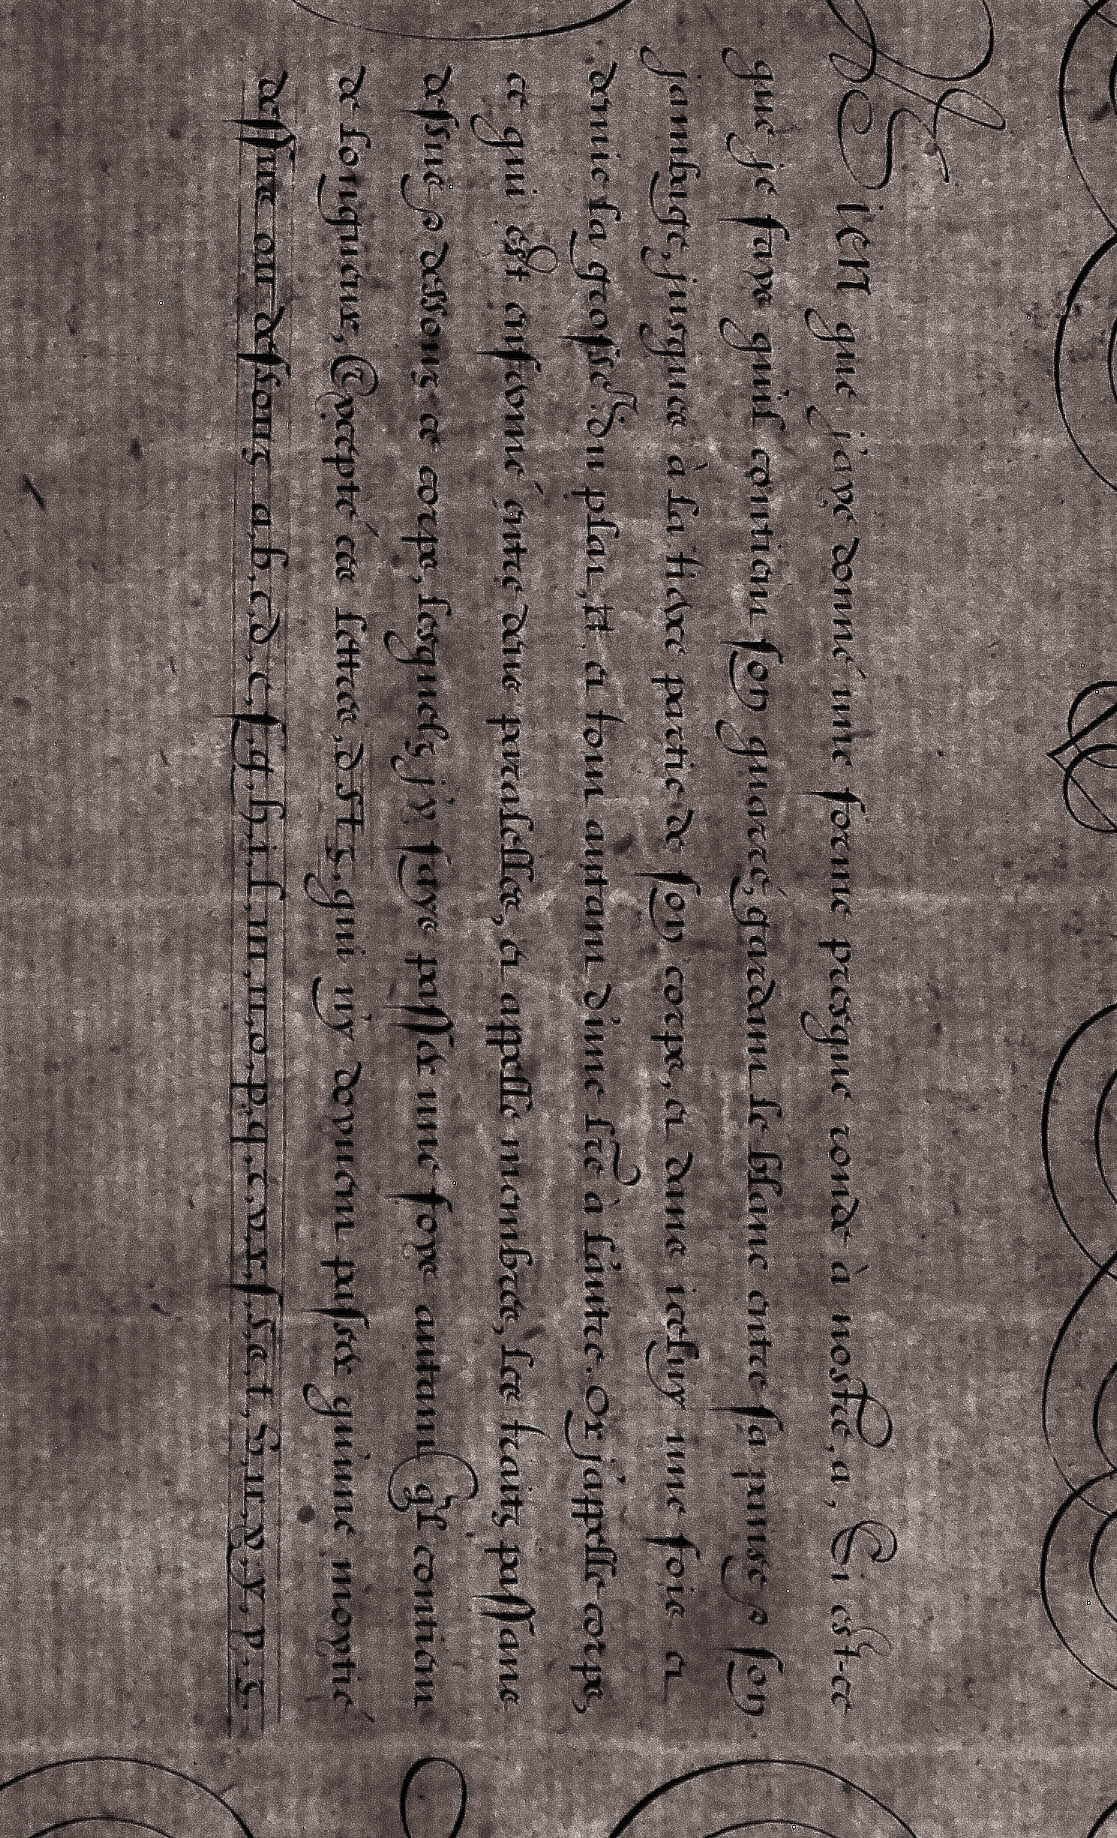 Bien que j'aye donné une forme presque ronde à nostre, a, Si est-ce
que je faye quil contient son quarré, gardant le blanc entre sa panse & son
jambage, jusques à la tierce partie de son corps, et dans iceluy une foie et
demie la grosse du plat, Et en tout autant d'une lre à l'autre. Or j'appelle corps,
ce qui est enfermé entre deux paralelles, et appelle membres, les traits passans
dessus & dessous ce corps, lesquels j'y faye passer une foye autant ql contient
de longueur, Excepté ces lettres, d ſt z, qui n'y doyvent passer qu'une moytié
dessus ou dessous a.b.c.d.e.f.g.h.i.l.m.n.o.p.q.r. s.t.